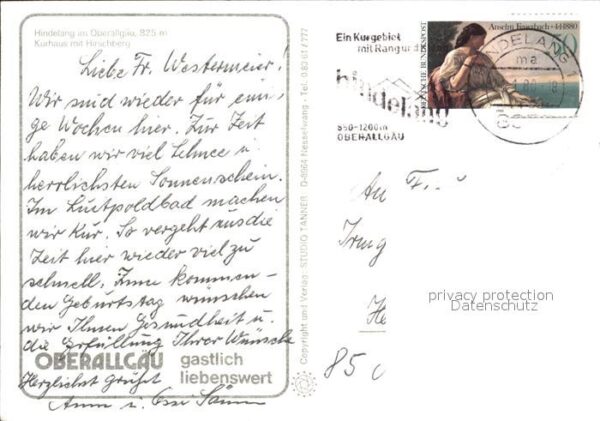 Hindelang im Oberallgäu, 825 m
Kurhaus mit Hirschberg
Liebe Fr. Westermeier!
Wir sind wieder für eini-
ge Wochen hier. Zur Zeit
haben wir viel Schnee u.
herrlichsten Sonnenschein.
Im Luitpoldbad machen
wir Kur. So vergeht uns die
Zeit hier wieder viel zu
schnell. Zum kommen-
den Geburtstag wünschen
wir Ihnen Gesundheit u.
die Erfüllung Ihrer Wünsche
OBERALLGÄU gastlich
liebenswert
Herzlichst grüßt
Anni u.
Copyright und Verlag STUDIO TANNER D-8964 Nesselwang - Tel. 0 83 61 / 777
Ein Kurgebiet
mit Rang und
hindelang
850-1200m
OBERALLGÄU
Anselm Feuerbach · 4.1.1880
DEUTSCHE BUNDESPOST
HINDELANG 1
ma
An F
Irmg
He
85
privacy protection
Datenschutz